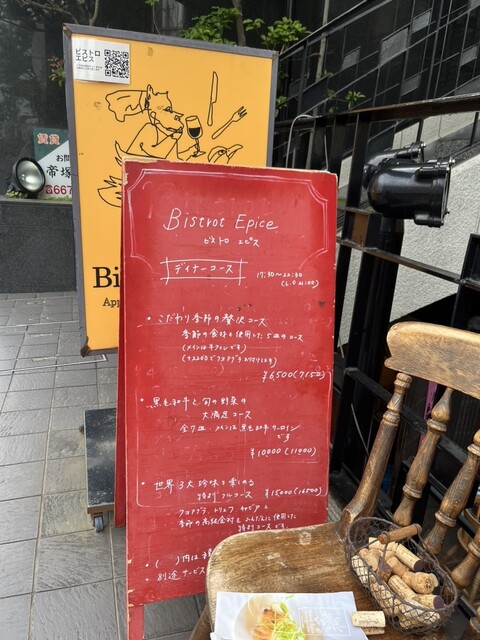 ビストロ
エピス
賃貸
お問
帝塚
667
Bi
App
Bistrot Epice
ビストロ エピス
ディナーコース
17:30〜22:30
(L.O 21:00)
・こだわり季節の贅沢コース
季節の食材を使用した5皿のコース
(メインは牛フィレです)
¥6500(7150)
・黒毛和牛と旬の野菜の
大満足コース
全7皿 メインは黒毛和牛サーロイン
です
¥10000(11000)
・世界3大珍味を楽しめる
特別フルコース ¥15000(16500)
フォアグラ、トリュフ、キャビアと
季節の高級食材をふんだんに使用した
特別コースです。
・( )内は税
別途サービス